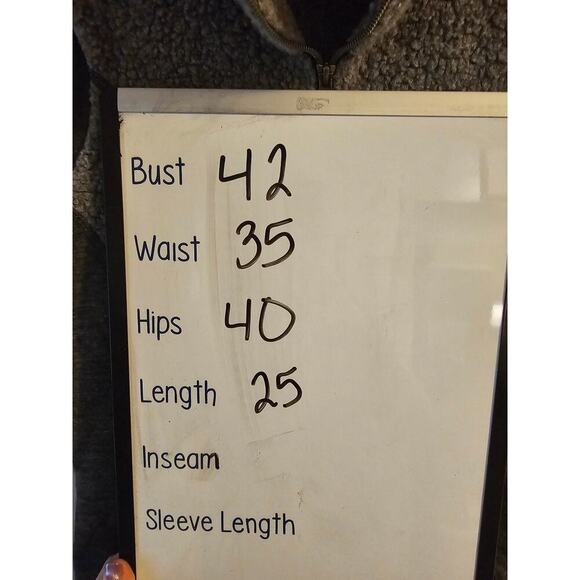 Bust 42
Waist 35
Hips 40
Length 25
Inseam
Sleeve Length